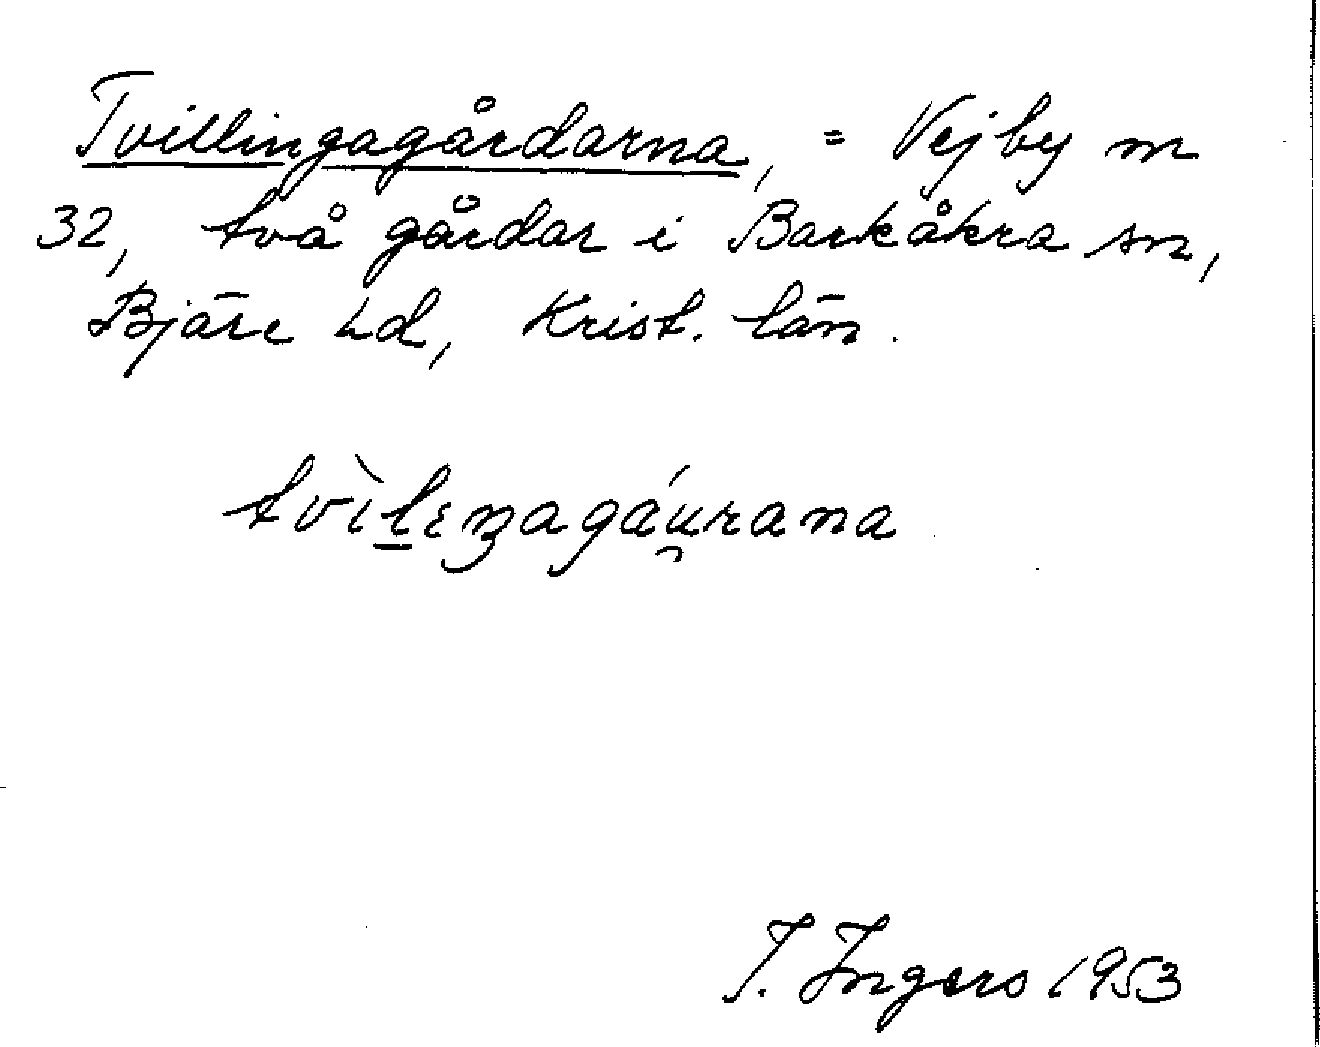 Tvillingagårdarna, = Vejby m
32, två gårdar i Barkåkra sn,
Bjäre hd, Krist. län.
tvìl̠ɛŋagáu̯rana
I. Ingers 1953